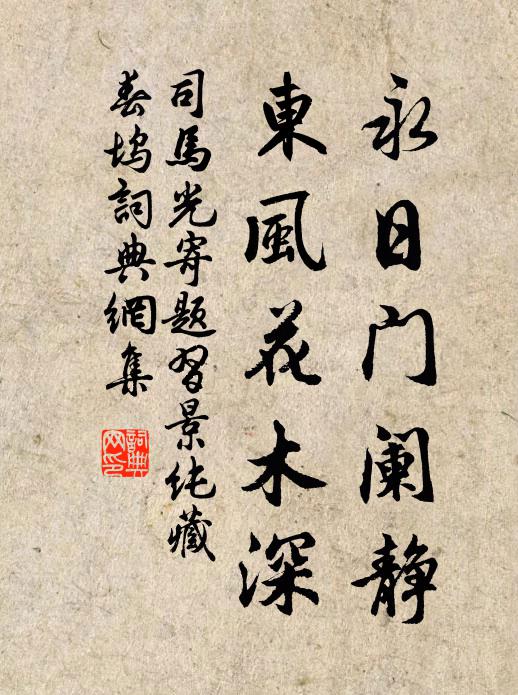 永日门阑静
東風花木深
司馬光寄题習景纯藏
春塢詞典網集
詞典网印